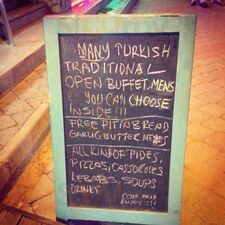 MANY TURKISH
TRADITIONAL
OPEN BUFFET, MENS
YOU CAN CHOOSE
INSIDE!!!
FREE PITTABREAD
GARLIC BUTTER
ALL KIND OF PIDES,
PIZZAS, CASSOROLES
KEBABS, SOUPS
DRINKS
COME AND
ENJOY!!!!